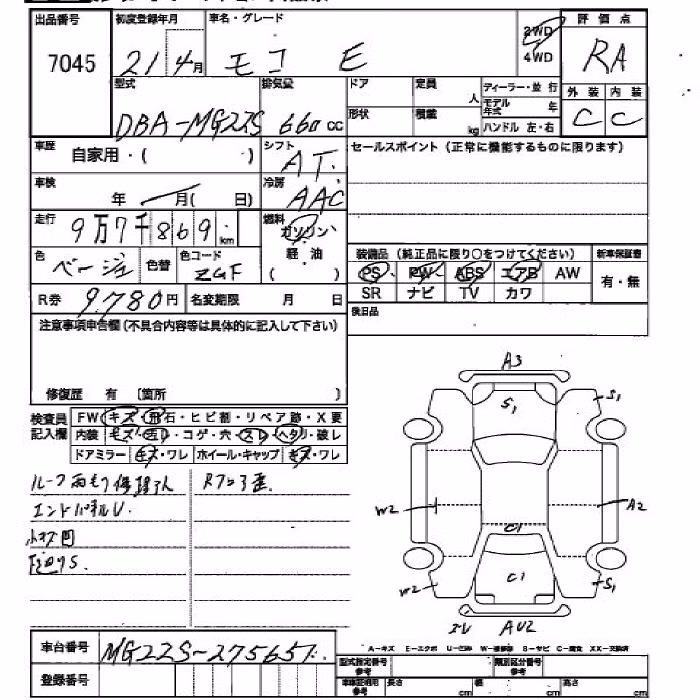 出品番号 初度登録年月 車名・グレード 2WD 4WD 評価点
7045 21 4月 モコ E RA
型式 排気量 ドア 定員 人 ディーラー・並行 外装 内装
DBA-MG22S 660cc 形状 積載 kg モデル年式 年 C C
ハンドル 左・右
車歴 自家用・( ) シフト AT セールスポイント(正常に機能するものに限ります)
車検 年 月( 日) 冷房 AAC
走行 9万7千869km 燃料 ガソリン 軽油 ( )
色 ベージュ 色替 色コード ZGF
装備品(純正品に限り○をつけてください) 新車保証書
PS PW ABS エアB AW 有・無
SR ナビ TV カワ
R券 9,780円 名変期限 月 日
後日品
注意事項申告欄(不具合内容等は具体的に記入して下さい)
修復歴 有 〔箇所 〕
検査員記入欄 FW キズ・飛石・ヒビ割・リペア跡・X要
内装 キズ・汚レ・コゲ・穴・スレ・ヘタリ・破レ
ドアミラー キズ・ワレ ホイール・キャップ キズ・ワレ
エンドパネルU
A3
S1 S1
W2 A2
C1
W2 C1 S1
AU2
車台番号 MG22S-275657
登録番号
A-キズ E-エクボ U-凹み W-補修跡 S-サビ C-腐食 XX-交換済
型式指定番号 参考 類別区分番号 参考
長さ cm 幅 cm 高さ cm